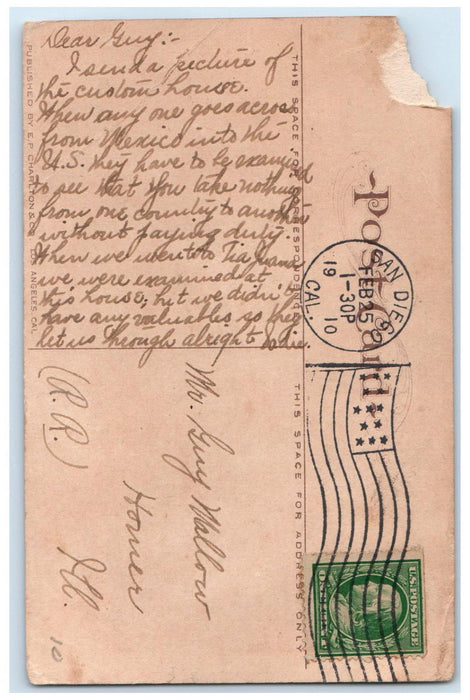 Dear Guy:-
I send a picture of
the custom house.
When any one goes across
from Mexico into the
U.S. they have to be examined
to see that you take nothing
from one country to another
without paying duty.
When we went to Tia Juana
we were examined at
this house, but we didn't
have any valuables so they
let us through alright
PUBLISHED BY E.P. CHARLTON & CO. LOS ANGELES, CAL.
THIS SPACE FOR CORRESPONDENCE
THIS SPACE FOR ADDRESS ONLY
Post Card
SAN DIEGO
FEB 25
1-30P
19 10
CAL.
U.S. POSTAGE
Mr. Guy Wallow
Homer
Ill.
(R.R.)
10